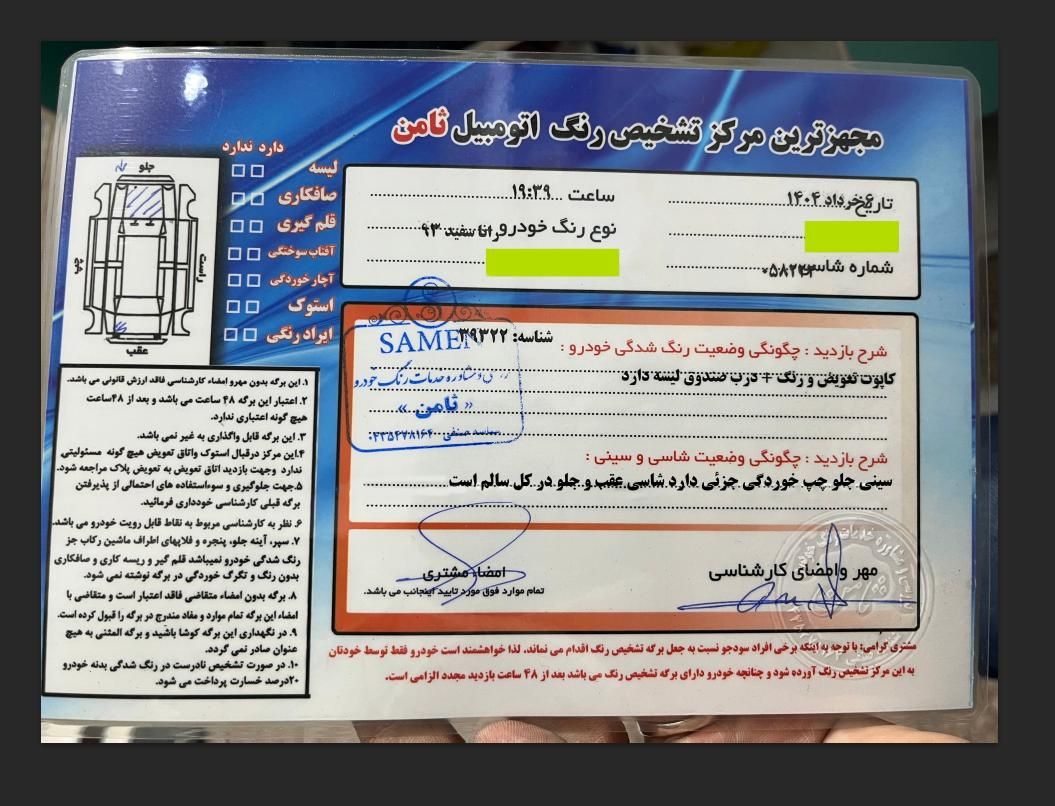 مجهزترین مرکز تشخیص رنگ اتومبیل ثامن
تاریخ ۶خرداد ۱۴۰۴
ساعت ۱۹:۳۹
نوع رنگ خودرو رانا سفید ۹۳
شماره شاسی ۰۵۸۲۴۴
دارد ندارد
لیسه
صافکاری
قلم گیری
آفتاب سوختگی
آچار خوردگی
استوک
ایراد رنگی
جلو
راست
چپ
عقب
شناسه: ۳۹۳۲۲
شرح بازدید : چگونگی وضعیت رنگ شدگی خودرو :
کاپوت تعویض و رنگ + درب صندوق لیسه دارد
SAMEN
مشاوره خدمات رنگ خودرو
« ثامن »
شرح بازدید : چگونگی وضعیت شاسی و سینی :
سینی جلو چپ خوردگی جزئی دارد شاسی عقب و جلو در کل سالم است
مهر وامضای کارشناسی
امضاء مشتری
تمام موارد فوق مورد تایید اینجانب می باشد.
۱. این برگه بدون مهرو امضاء کارشناسی فاقد ارزش قانونی می باشد.
۲. اعتبار این برگه ۴۸ ساعت می باشد و بعد از ۴۸ساعت
هیچ گونه اعتباری ندارد.
۳. این برگه قابل واگذاری به غیر نمی باشد.
۴.این مرکز درقبال استوک واتاق تعویض هیچ گونه مسئولیتی
ندارد وجهت بازدید اتاق تعویض به تعویض پلاک مراجعه شود.
۵.جهت جلوگیری و سوءاستفاده های احتمالی از پذیرفتن
برگه قبلی کارشناسی خودداری فرمائید.
۶. نظر به کارشناسی مربوط به نقاط قابل رویت خودرو می باشد.
۷. سپر، آینه جلو، پنجره و فلاپهای اطراف ماشین رکاب جز
رنگ شدگی خودرو نمیباشد قلم گیر و ریسه کاری و صافکاری
بدون رنگ و تگرگ خوردگی در برگه نوشته نمی شود.
۸. برگه بدون امضاء متقاضی فاقد اعتبار است و متقاضی با
امضاء این برگه تمام موارد و مفاد مندرج در برگه را قبول کرده است.
۹. در نگهداری این برگه کوشا باشید و برگه المثنی به هیچ
عنوان صادر نمی گردد.
۱۰. در صورت تشخیص نادرست در رنگ شدگی بدنه خودرو
۲۰درصد خسارت پرداخت می شود.
مشتری گرامی: با توجه به اینکه برخی افراد سودجو نسبت به جعل برگه تشخیص رنگ اقدام می نماند. لذا خواهشمند است خودرو فقط توسط خودتان
به این مرکز تشخیص رنگ آورده شود و چنانچه خودرو دارای برگه تشخیص رنگ می باشد بعد از ۴۸ ساعت بازدید مجدد الزامی است.